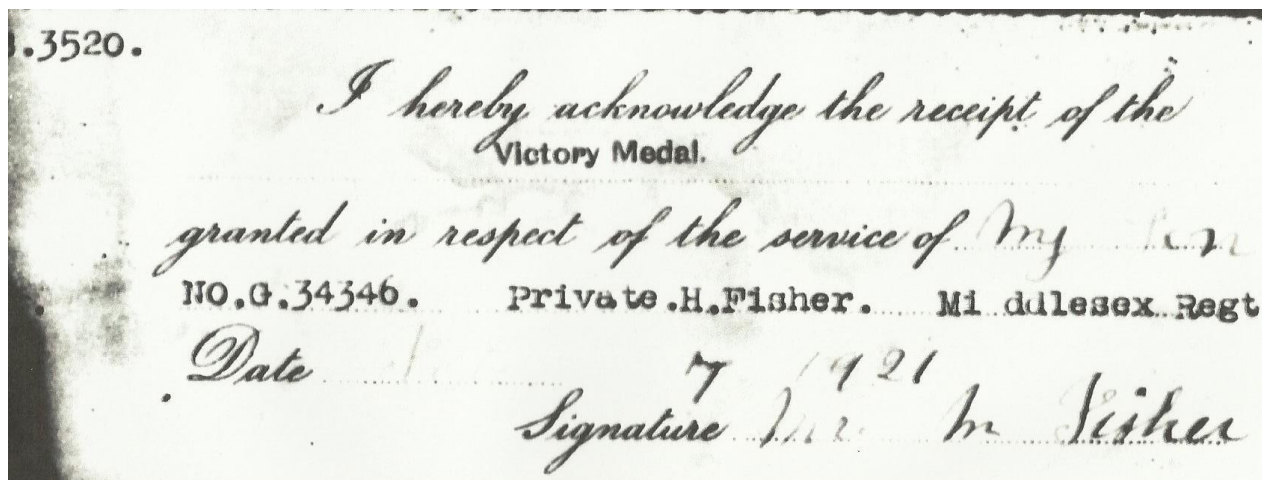 .3520.
I hereby acknowledge the receipt of the
Victory Medal.
granted in respect of the service of My
NO.G.34346. Private.H.Fisher. Middlesex Regt
Date 7 1921
Signature M Fisher